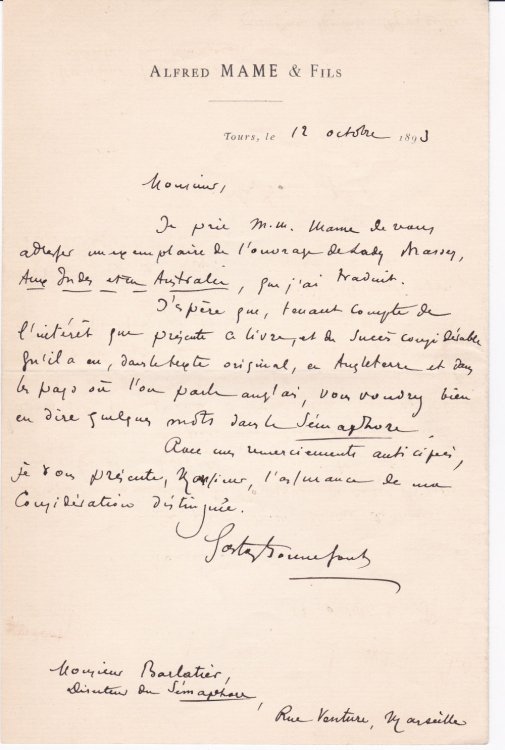 ALFRED MAME & FILS
Tours, le 12 octobre 1893
Monsieur,
Je prie M.M. Mame de vous
adresser un exemplaire de l'ouvrage de Lady Brassey,
Aux Indes et en Australie, que j'ai traduit.
J'espère que, tenant compte de
l'intérêt que présente ce livre, et du succès considérable
qu'il a eu, dans le texte original, en Angleterre et dans
les pays où l'on parle anglais, vous voudrez bien
en dire quelques mots dans le Sémaphore.
Avec mes remerciements anticipés,
je vous présente, Monsieur, l'assurance de ma
Considération distinguée.
Gaston Bonnefont
Monsieur Barlatier,
Directeur du Sémaphore,
Rue Venture, Marseille